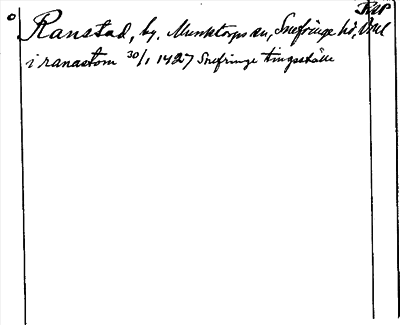 RAP
Ranstad, by. Munktorps sn, Snefringe hd, Vml
i ranastom 30/1 1427 Snefringe tingsställe